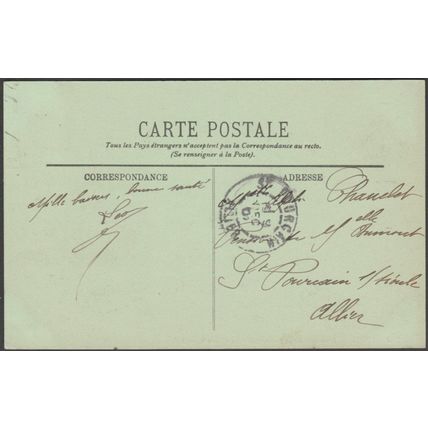 CARTE POSTALE
Tous les Pays étrangers n'acceptent pas la Correspondance au recto.
(Se renseigner à la Poste).
CORRESPONDANCE
ADRESSE
Mille baisers, bonne santé
Léo
Chauchat
St Pourcain s/sioule
Allier